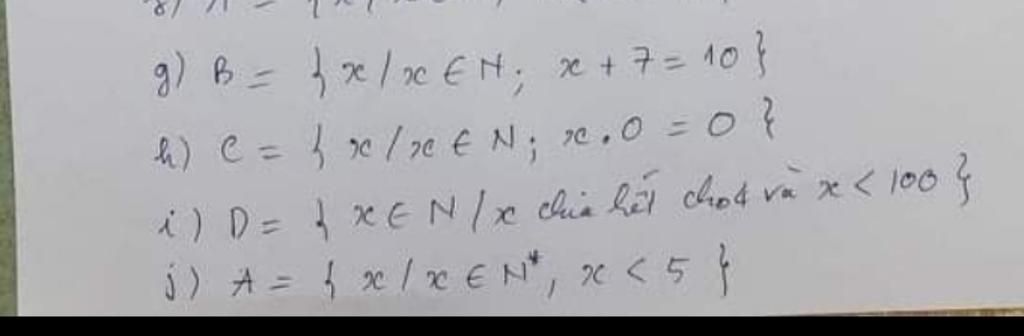 g) B = { x / x ∈ N; x + 7 = 10 }
h) C = { x / x ∈ N; x . 0 = 0 }
i) D = { x ∈ N / x chia hết cho 4 và x < 100 }
j) A = { x / x ∈ N*, x < 5 }